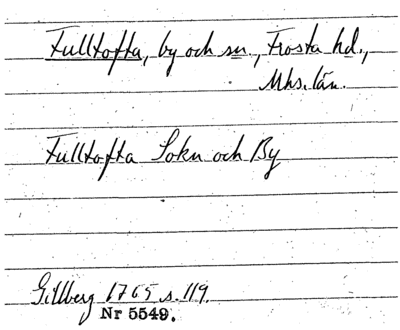 Fulltofta, by och sn., Frosta hd.,
Mhs. län.
Fulltofta Sokn och By
Gillberg 1765 s. 119.
Nr 5549.